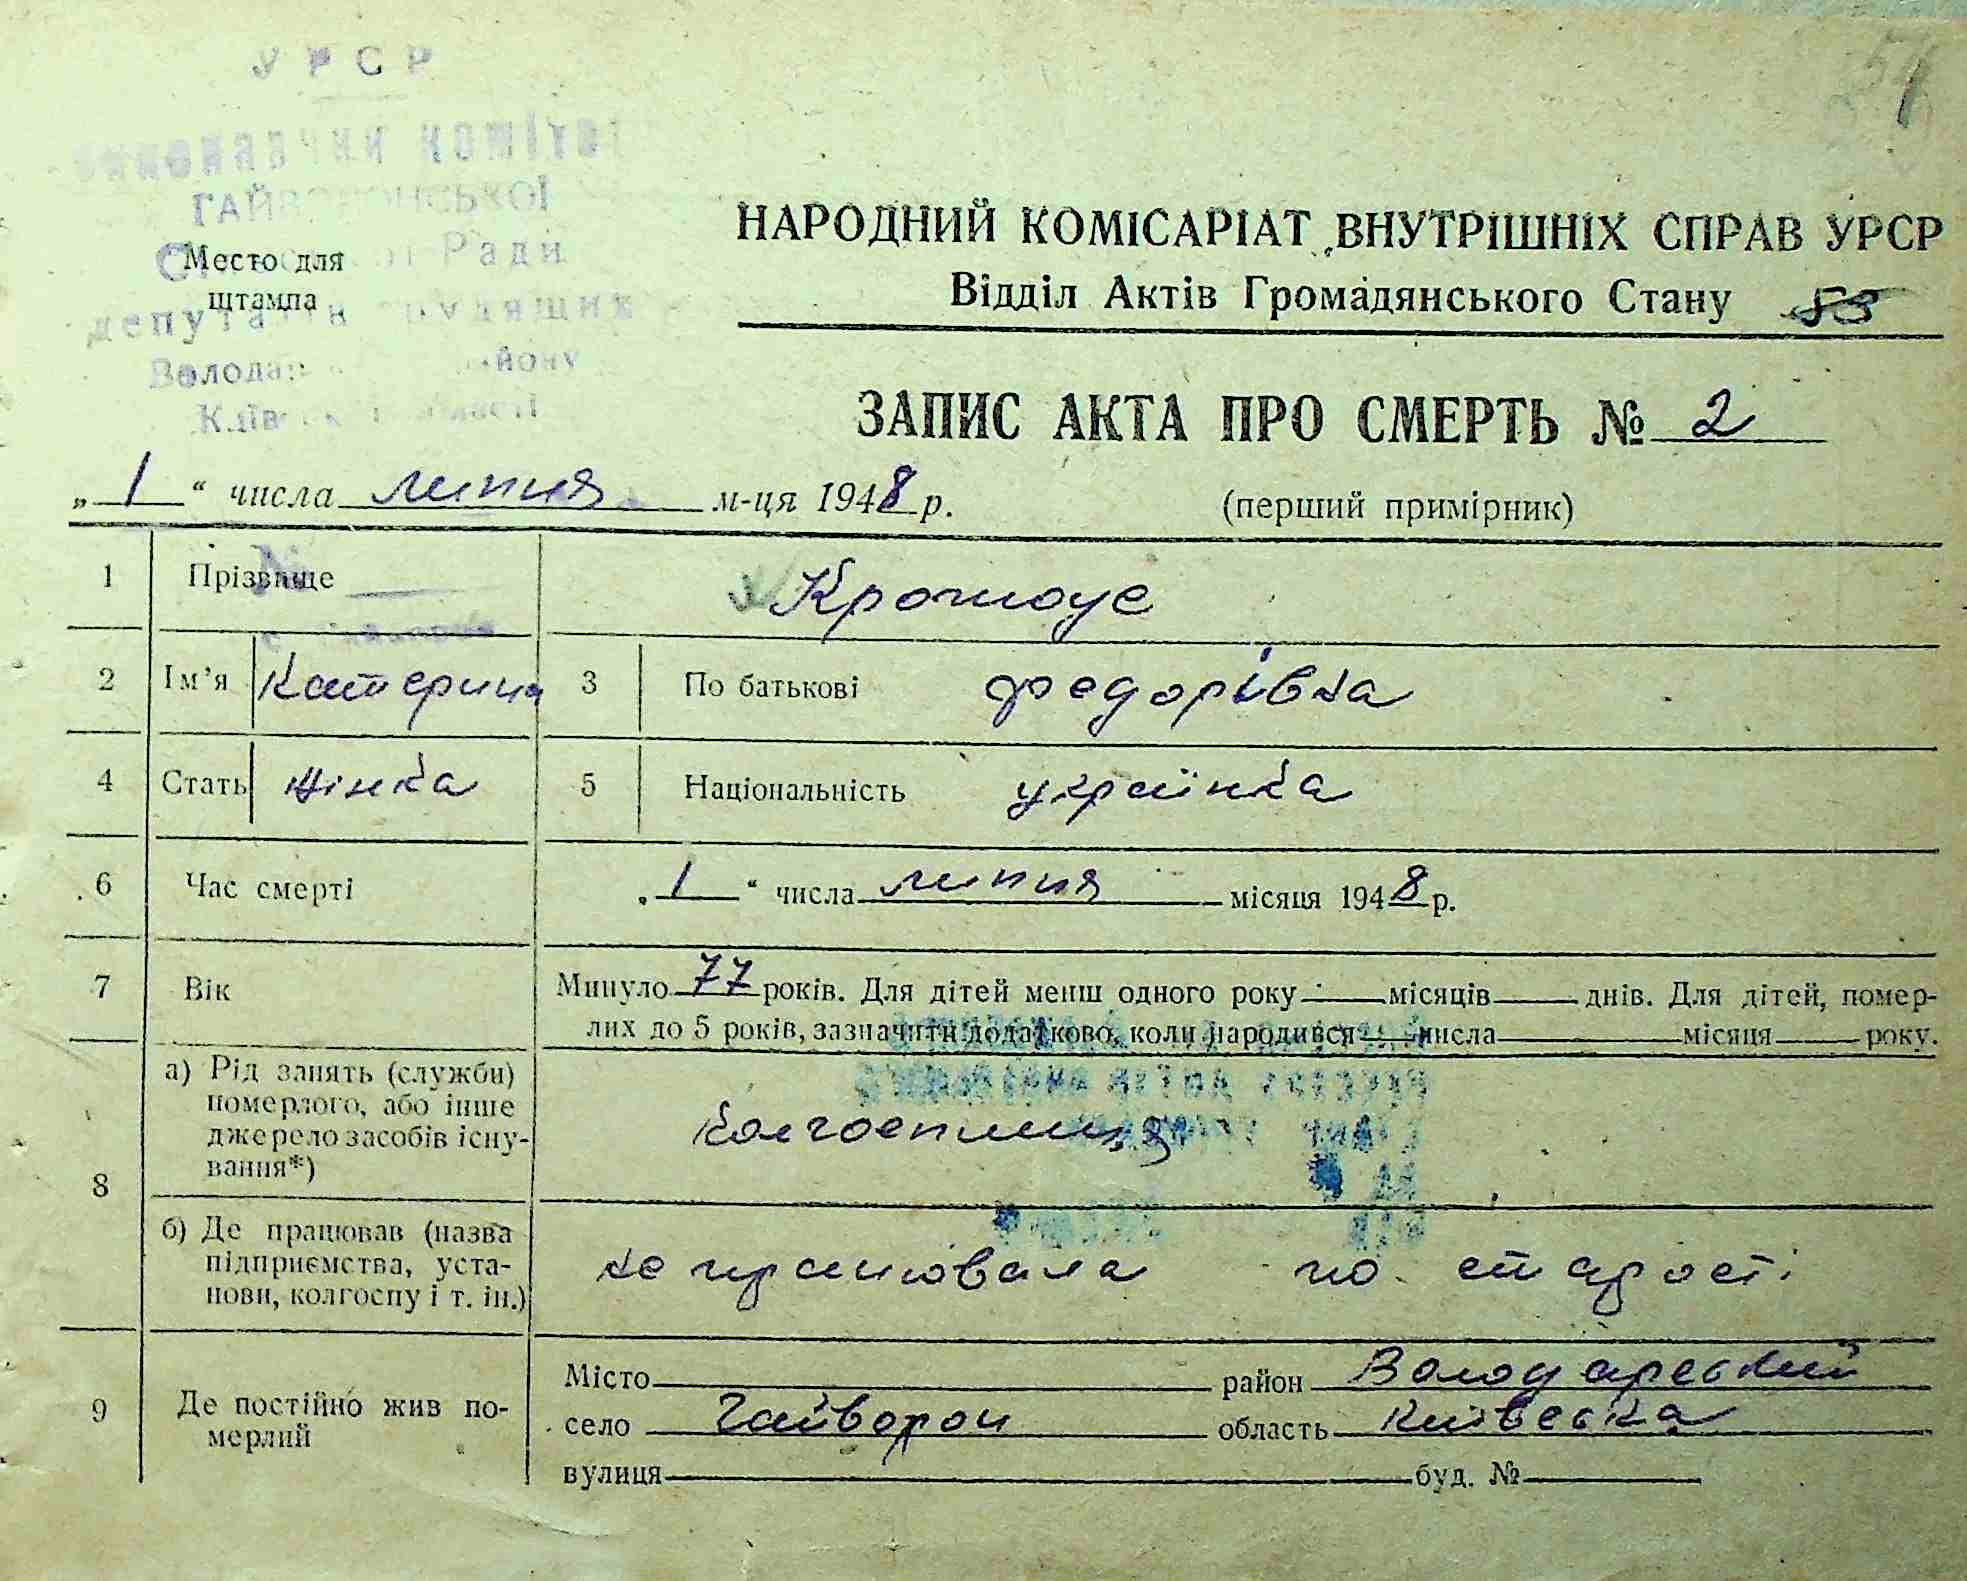 УРСР
виконавчий комітет
ГАЙВОРОНСЬКОЇ
Сільської Ради
депутатів трудящих
Володарського району
Київської області
Место для
штампа
54
НАРОДНИЙ КОМІСАРІАТ ВНУТРІШНІХ СПРАВ УРСР
Відділ Актів Громадянського Стану 53
ЗАПИС АКТА ПРО СМЕРТЬ № 2
„ 1 “ числа липня м-ця 1948 р. (перший примірник)
1 Прізвище
№
2 Ім’я Катерина 3 По батькові Федорівна
4 Стать жінка 5 Національність українка
6 Час смерті „ 1 “ числа липня місяця 1948 р.
7 Вік Минуло 77 років. Для дітей менш одного року місяців днів. Для дітей, помер-
лих до 5 років, зазначити додатково, коли народився числа місяця року.
8 а) Рід занять (служби)
померлого, або інше
джерело засобів існу-
вання*)
колгоспниця
б) Де працював (назва
підприємства, уста-
нови, колгоспу і т. ін.)
не працювала по старості
9 Де постійно жив по-
мерлий
Місто район Володарський
село Гайворон область Київська
вулиця буд. №